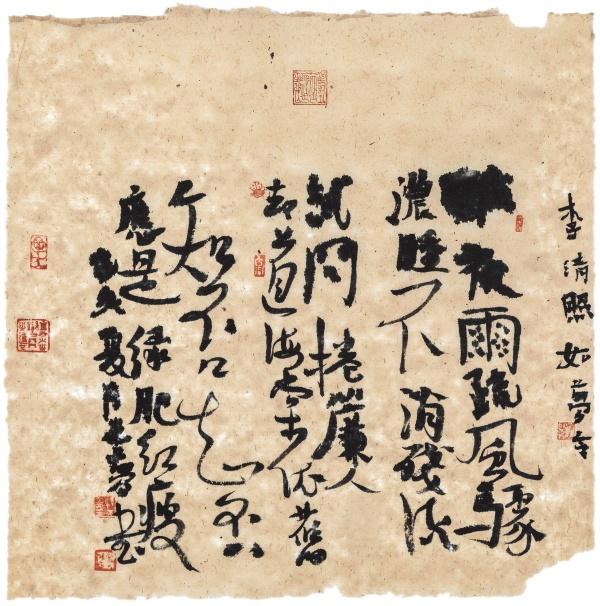 李清照如夢令
昨夜雨疏風驟
濃睡不消殘酒
試問捲簾人
却道海棠依舊
知否知否
應是緑肥紅瘦
夏月書